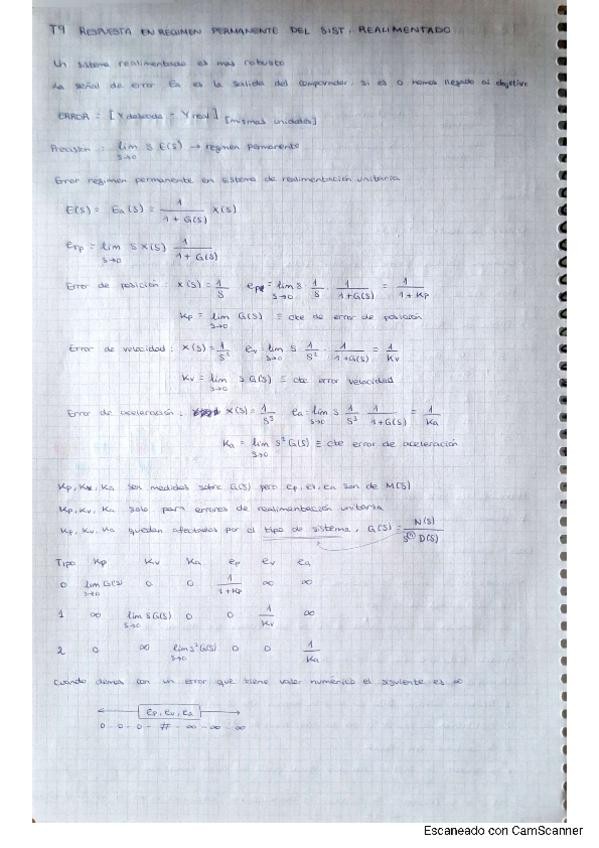 T9 RESPUESTA EN REGIMEN PERMANENTE DEL SIST. REALIMENTADO
Un sistema realimentado es mas robusto
La señal de error Ea es la salida del comparador, si es 0 hemos llegado al objetivo
ERROR = [Ydeseada - Yreal] [mismas unidades]
Precision : lim s→0 s E(s) → regimen permanente
Error regimen permanente en sistema de realimentación unitaria
E(s) = Ea(s) = 1/(1+G(s)) X(s)
erp = lim s→0 s X(s) 1/(1+G(s))
Error de posición : X(s) = 1/s ep = lim s→0 s · 1/s · 1/(1+G(s)) = 1/(1+Kp)
Kp = lim s→0 G(s) ≡ cte de error de posición
Error de velocidad : X(s) = 1/s² ev = lim s→0 s 1/s² · 1/(1+G(s)) = 1/Kv
Kv = lim s→0 s G(s) ≡ cte error velocidad
Error de aceleración : X(s) = 1/s³ ea = lim s→0 s 1/s³ 1/(1+G(s)) = 1/Ka
Ka = lim s→0 s² G(s) ≡ cte error de aceleración
Kp, Kv, Ka son medidas sobre G(s) pero ep, ev, ea son de M(s)
Kp, Kv, Ka solo para errores de realimentación unitaria
Kp, Kv, Ka quedan afectadas por el tipo de sistema, G(s) = N(s)/(sⁿ D(s))
Tipo Kp Kv Ka ep ev ea
0 lim s→0 G(s) 0 0 1/(1+Kp) ∞ ∞
1 ∞ lim s→0 s G(s) 0 0 1/Kv ∞
2 0 ∞ lim s→0 s² G(s) 0 0 1/Ka
Cuando demos con un error que tiene valor numérico el siguiente es ∞
ep, ev, ea
0 - 0 - 0 - # - ∞ - ∞ - ∞
Escaneado con CamScanner